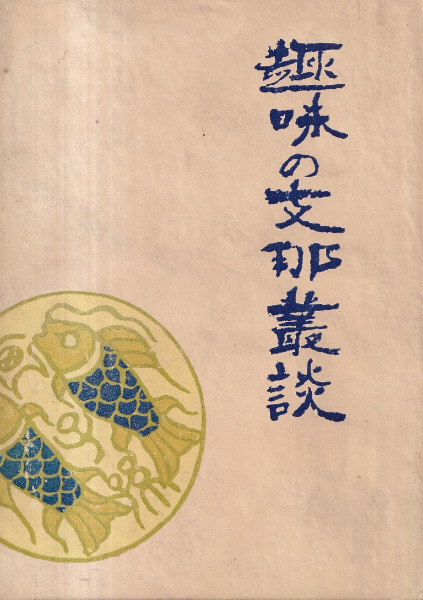 趣味の支那叢談